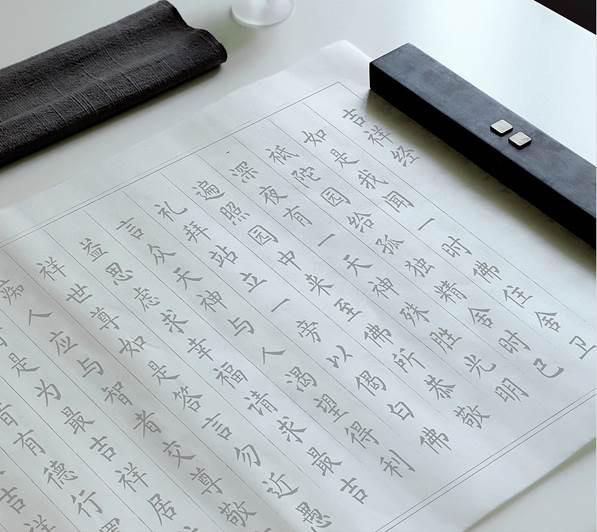 吉祥经
如是我闻一时佛住舍卫
祇陀园给孤独精舍时己
深夜有一天神殊胜光明
遍照园中来至佛所恭敬
礼拜站立一旁以偈白佛
言众天神与人渴望得利
益思虑求幸福请求最吉
祥世尊如是答言勿近愚
痴人应与智者交尊敬
是为最吉祥居
有德行
吉